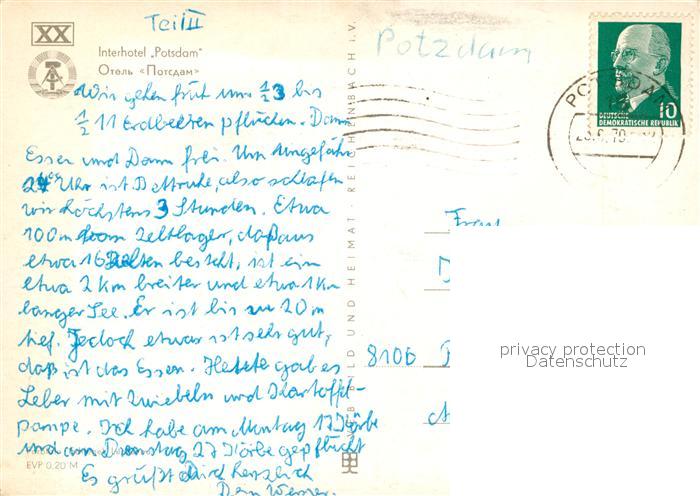 Teil II
XX
Interhotel „Potsdam"
Отель «Потсдам»
Potzdam
POTSDAM
DEUTSCHE
DEMOKRATISCHE REPUBLIK
10
Wir gehen früh um ½ 3 bis
½ 11 Erdbeeren pflücken. Dann
Essen und Dann frei. Um Ungefähr
24 Uhr ist Bettruhe, also schlafen
wir höchstens 3 Stunden. Etwa
100m vom Zeltlager, daß aus
etwa 16 Zelten besteht, ist ein
etwa 2 Km breiter und etwa 1Km
langer See. Er ist bis zu 20m
tief. Jedoch etwas ist sehr gut,
daß ist das Essen. Heute gab es
Leber mit Zwiebeln und Kartoffel-
pampe. Ich habe am Montag 17 Körbe
und am Dienstag 27 Körbe gepflückt
Es grüßt Dich herzlich
Dein Werner.
EVP 0,20 M
BILD UND HEIMAT · REICHENBACH i. V.
Frau
8106
privacy protection
Datenschutz